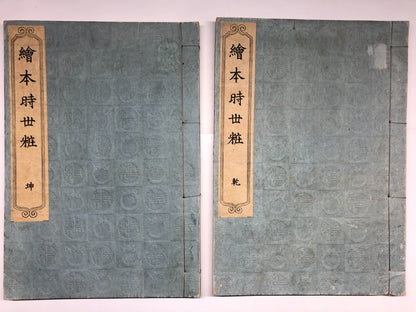 繪本時世粧
坤
繪本時世粧
乾